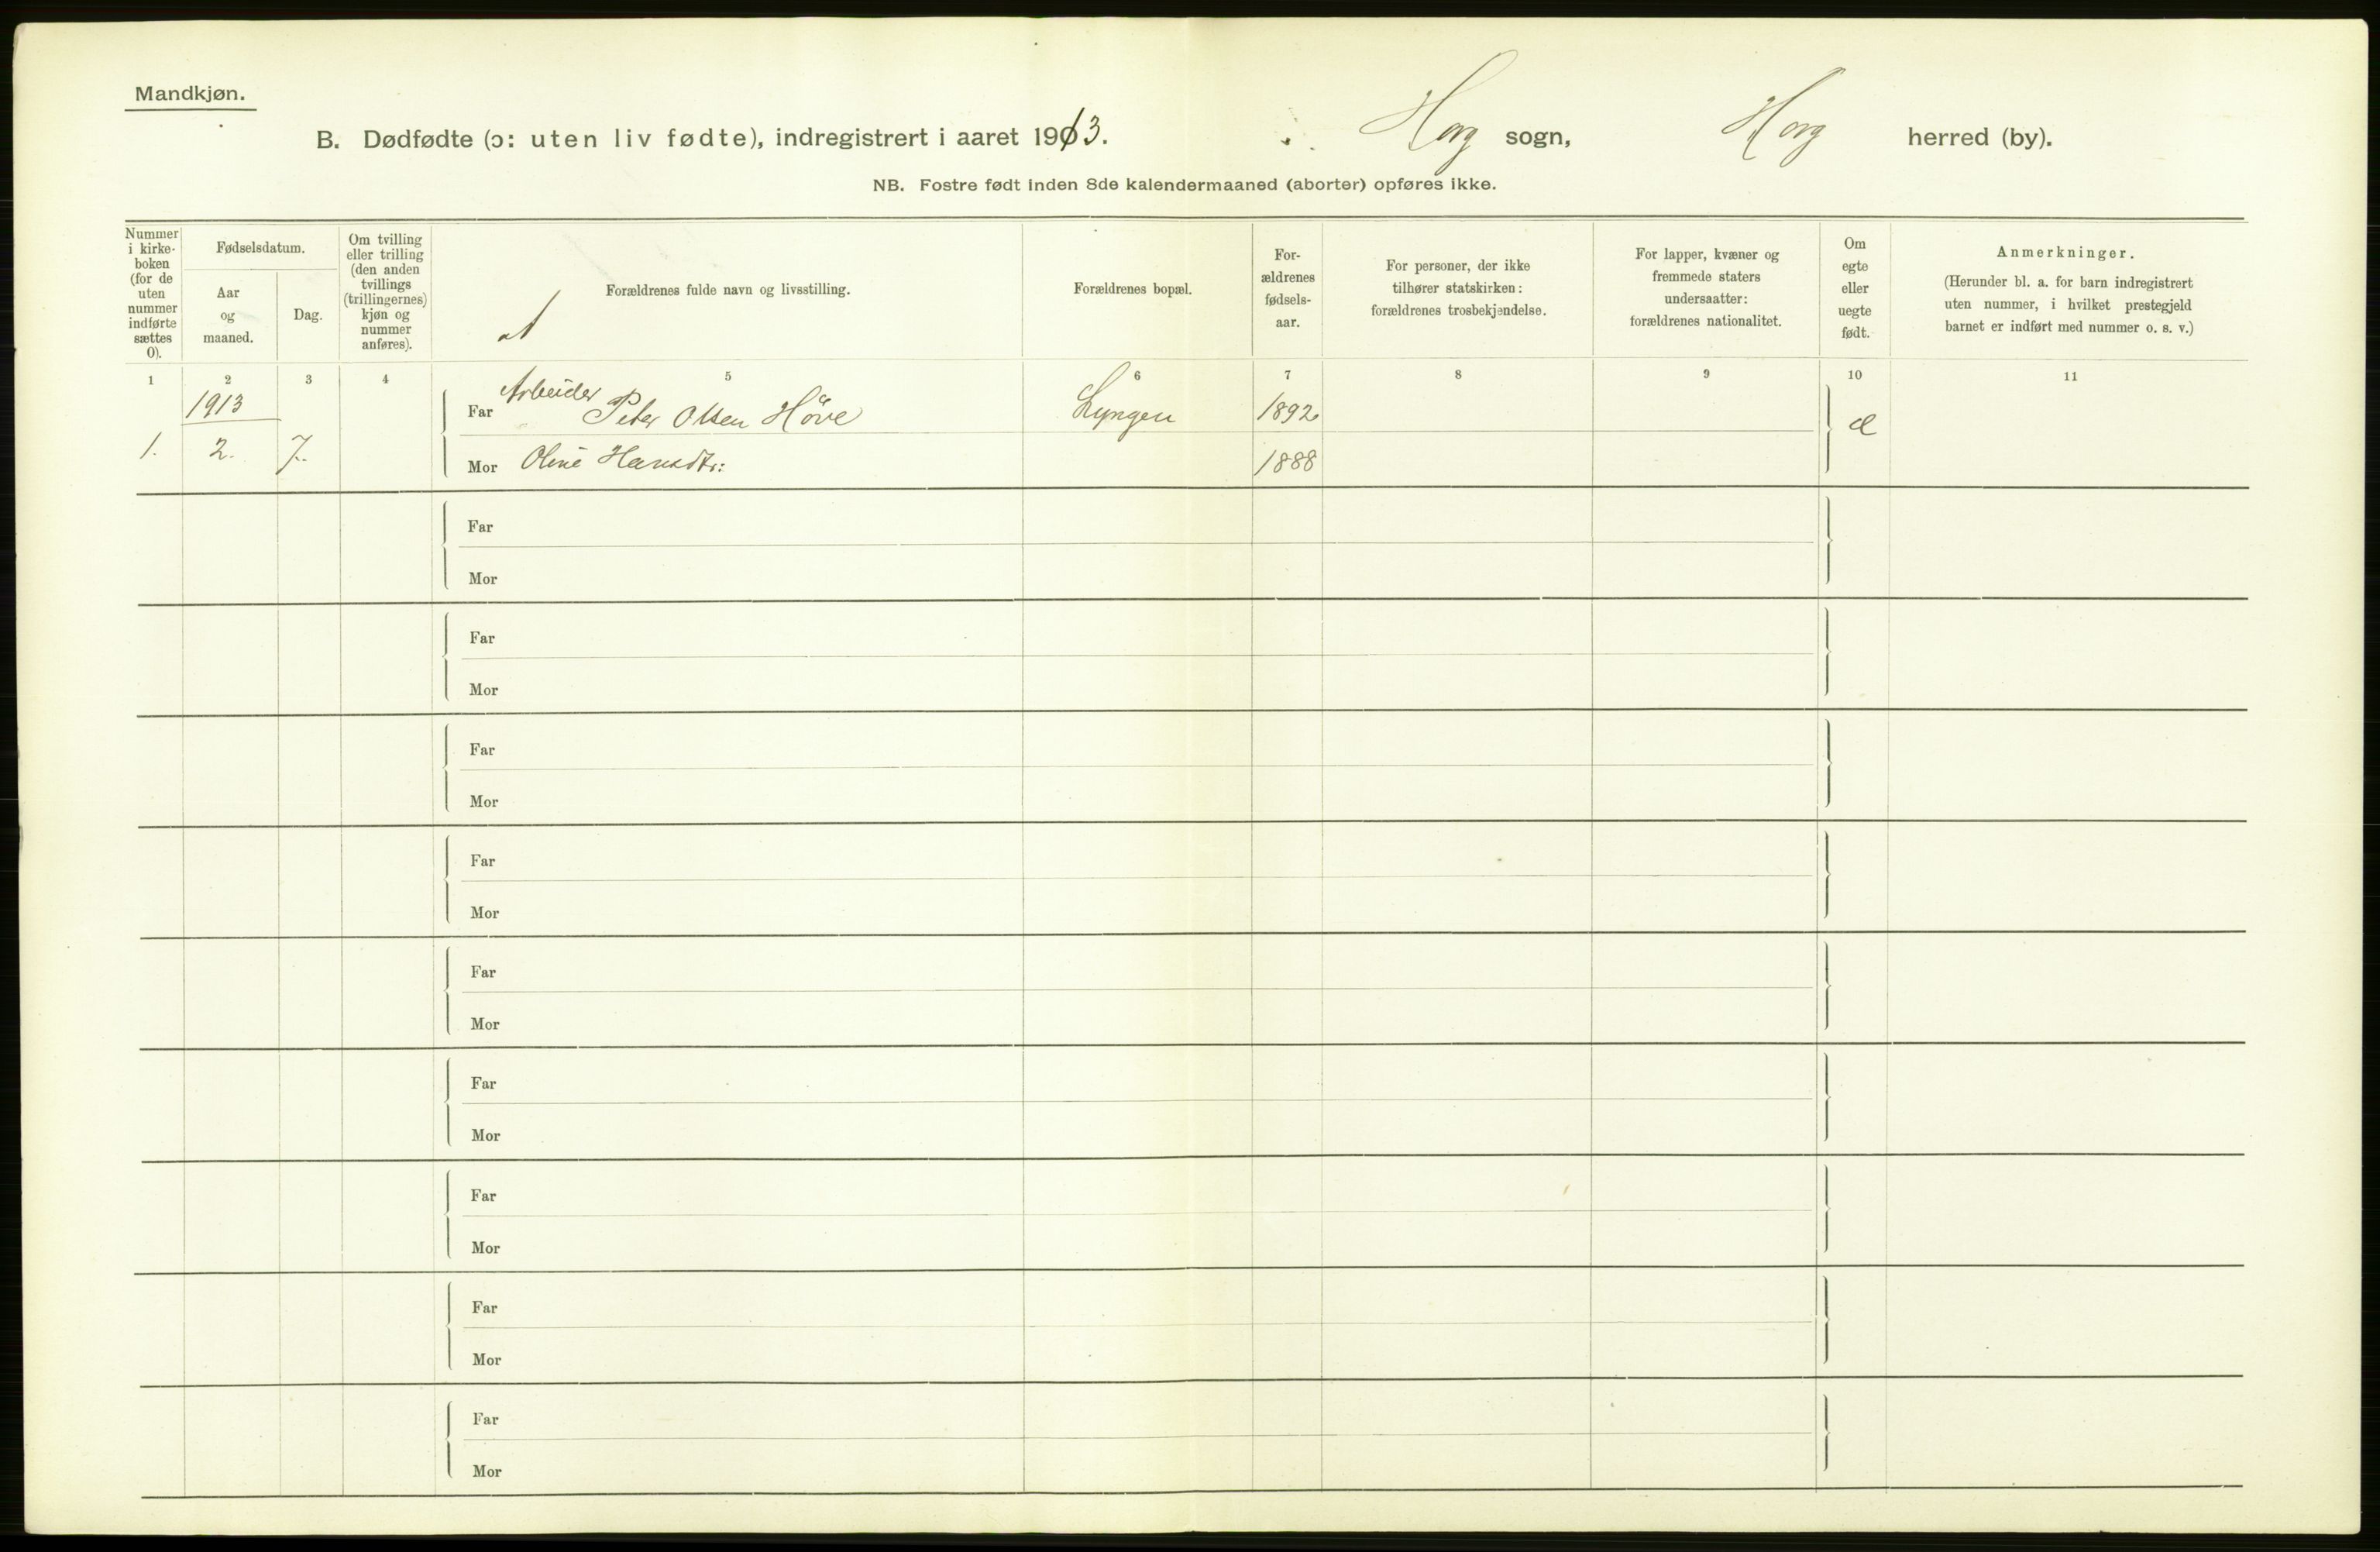 Mandkjøn.
B. Dødfødte (ɔ: uten liv fødte), indregistrert i aaret 1913. Horg sogn, Horg herred (by).
NB. Fostre født inden 8de kalendermaaned (aborter) opføres ikke.
Nummer
i kirke-
boken
(for de
uten
nummer
indførte
sættes
0).
Fødselsdatum.
Aar
og
maaned.
Dag.
Om tvilling
eller trilling
(den anden
tvillings
(trillingernes)
kjøn og
nummer
anføres).
Forældrenes fulde navn og livsstilling.
Forældrenes bopæl.
For-
ældrenes
fødsels-
aar.
For personer, der ikke
tilhører statskirken:
forældrenes trosbekjendelse.
For lapper, kvæner og
fremmede staters
undersaatter:
forældrenes nationalitet.
Om
egte
eller
uegte
født.
Anmerkninger.
(Herunder bl. a. for barn indregistrert
uten nummer, i hvilket prestegjeld
barnet er indført med nummer o. s. v.)
1 2 3 4 5 6 7 8 9 10 11
1913
Far Arbeider Peter Olsen Höve Lyngen 1892 æ
1. 2. 7. Mor Oline Hansdtr: 1888
Far
Mor
Far
Mor
Far
Mor
Far
Mor
Far
Mor
Far
Mor
Far
Mor
Far
Mor
Far
Mor